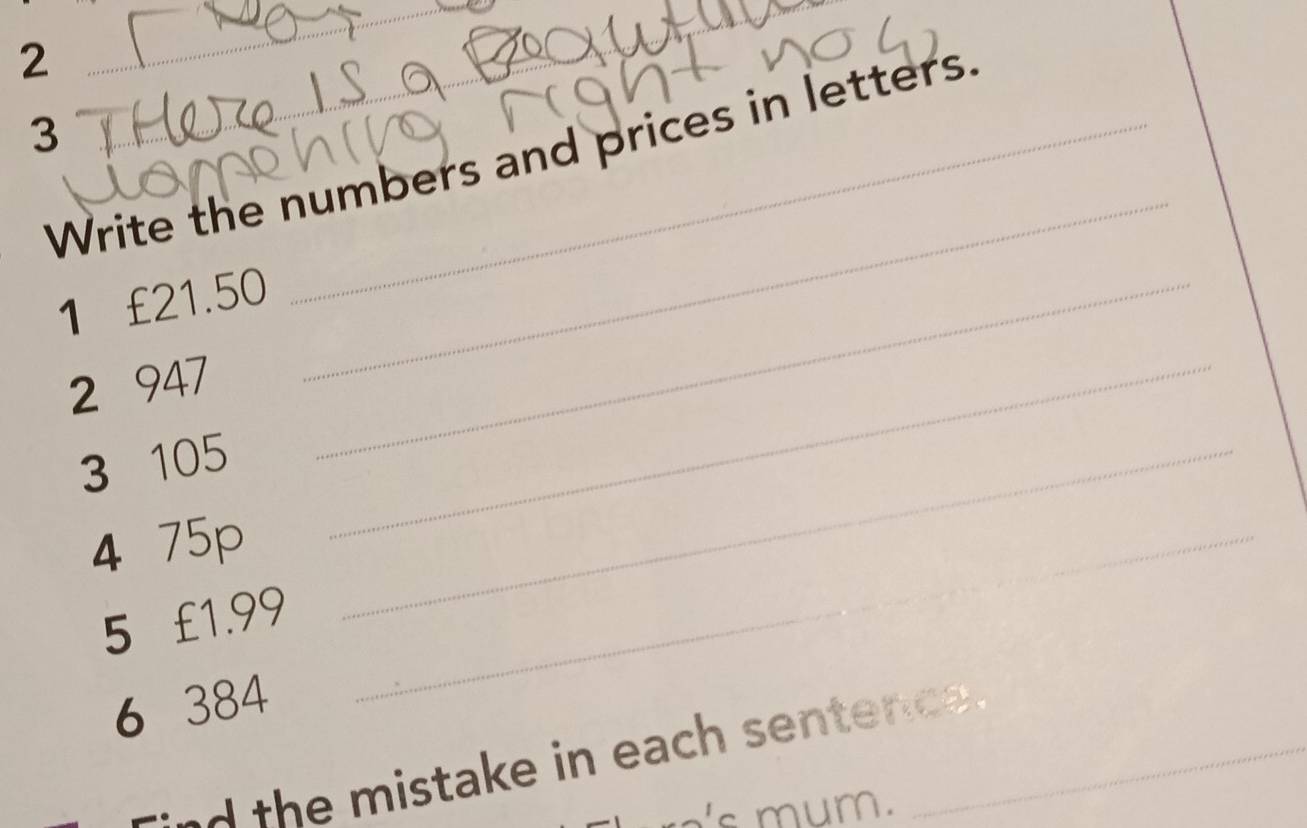 2
3 THere is a
right now
Write the numbers and prices in letters.
1 £21.50
2 947
3 105
4 75p
5 £1.99
6 384
Find the mistake in each sentence.
's mum.